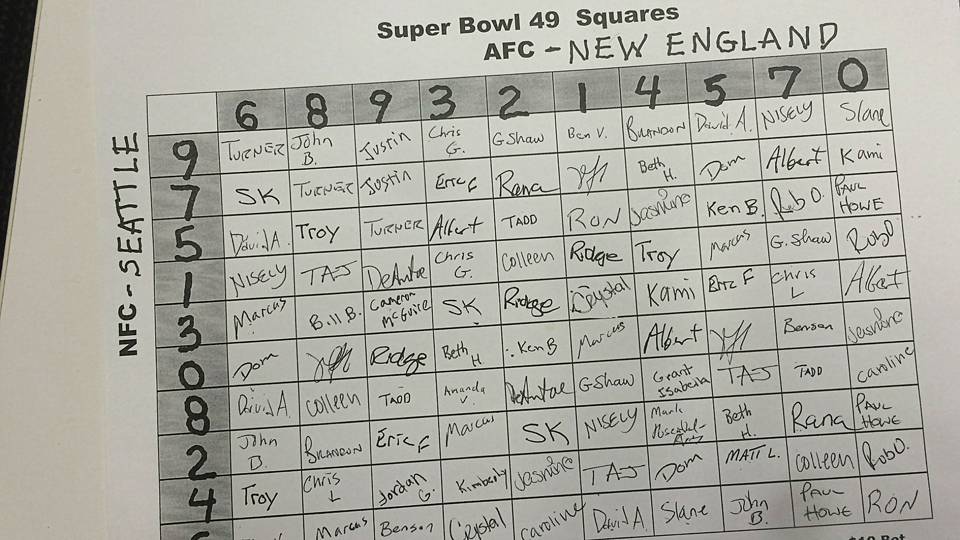 Super Bowl 49 Squares
AFC - NEW ENGLAND
NFC - SEATTLE
6 8 9 3 2 1 4 5 7 0
9 TURNER John B. Justin Chris G. G Shaw Ben V. BRANDON David A. NISELY Slane
7 SK TURNER Justin Eric F Rana Beth H. Dom Albert Kami
5 David A. Troy TURNER Albert TADD RON Jasmine Ken B. Rob O. PAUL HOWE
1 NISELY TAJ DeAntae Chris G. Colleen Ridge Troy Marcus G. Shaw Rob O
3 Marcus Bill B. Cameron McGuire SK Ridge Crystal Kami Eric F Chris L Albert
0 Dom Ridge Beth H. Ken B Marcus Albert Benson Jasmine
8 David A. Colleen TADD Amanda V. DeAntae G Shaw Grant TAJ TADD caroline
2 John B. BRANDON Eric F Marcus SK NISELY Mark Beth H. Rana PAUL HOWE
4 Troy Chris L Jordan G. Kimberly Jasmine TAJ Dom MATT L. Colleen Rob O.
Marcus Benson Crystal caroline David A Slane John B. PAUL HOWE RON